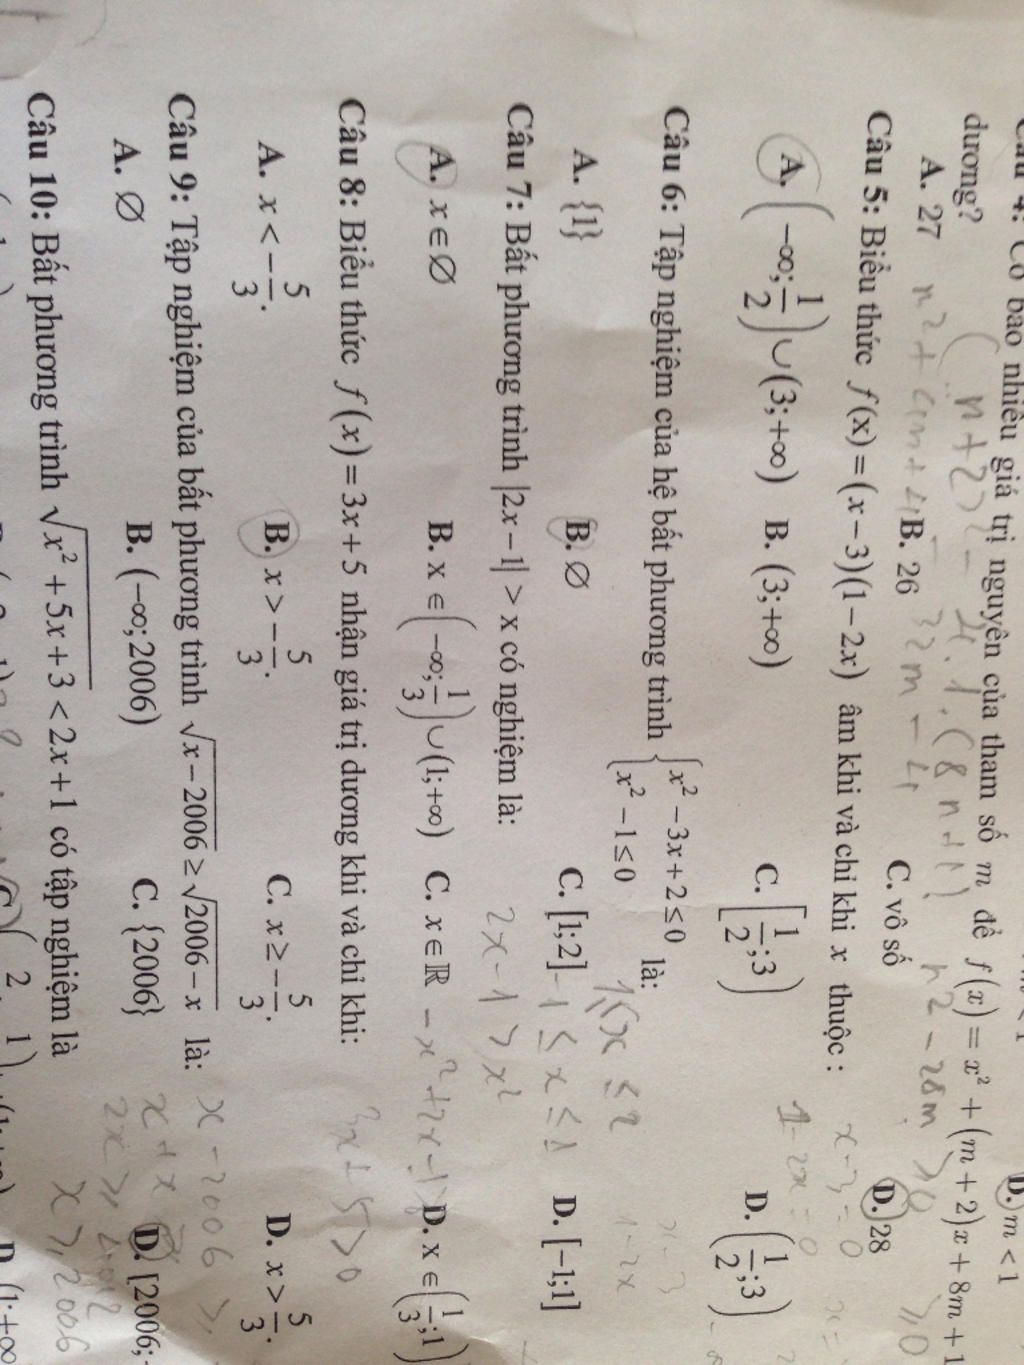 D. m < 1
Câu 4: Có bao nhiêu giá trị nguyên của tham số m để f(x) = x² + (m + 2)x + 8m + 1
dương?
(n+2)² - 4.1.(8m+1)
A. 27 B. 26 C. vô số D. 28
m² + 4m + 4 - 32m - 4 m² - 28m ≥ 0
Câu 5: Biểu thức f(x) = (x − 3)(1 − 2x) âm khi và chỉ khi x thuộc :
x - 3 = 0
1 - 2x = 0
A. (−∞; 1/2) ∪ (3; +∞) B. (3; +∞) C. [1/2; 3) D. (1/2; 3)
Câu 6: Tập nghiệm của hệ bất phương trình { x² − 3x + 2 ≤ 0 ; x² − 1 ≤ 0 là:
1 ≤ x ≤ 2
-1 ≤ x ≤ 1
A. {1} B. ∅ C. [1; 2] D. [−1; 1]
Câu 7: Bất phương trình |2x − 1| > x có nghiệm là:
2x - 1 > x²
- x² + 2x - 1
A. x ∈ ∅ B. x ∈ (−∞; 1/3) ∪ (1; +∞) C. x ∈ ℝ D. x ∈ (1/3; 1)
Câu 8: Biểu thức f(x) = 3x + 5 nhận giá trị dương khi và chỉ khi:
3x + 5 > 0
A. x < −5/3. B. x > −5/3. C. x ≥ −5/3. D. x > 5/3.
Câu 9: Tập nghiệm của bất phương trình √(x − 2006) ≥ √(2006 − x) là:
x - 2006 ≥
x + x
A. ∅ B. (−∞; 2006) C. {2006} D. [2006;
2x ≥ 4012
x ≥ 2006
Câu 10: Bất phương trình √(x² + 5x + 3) < 2x + 1 có tập nghiệm là